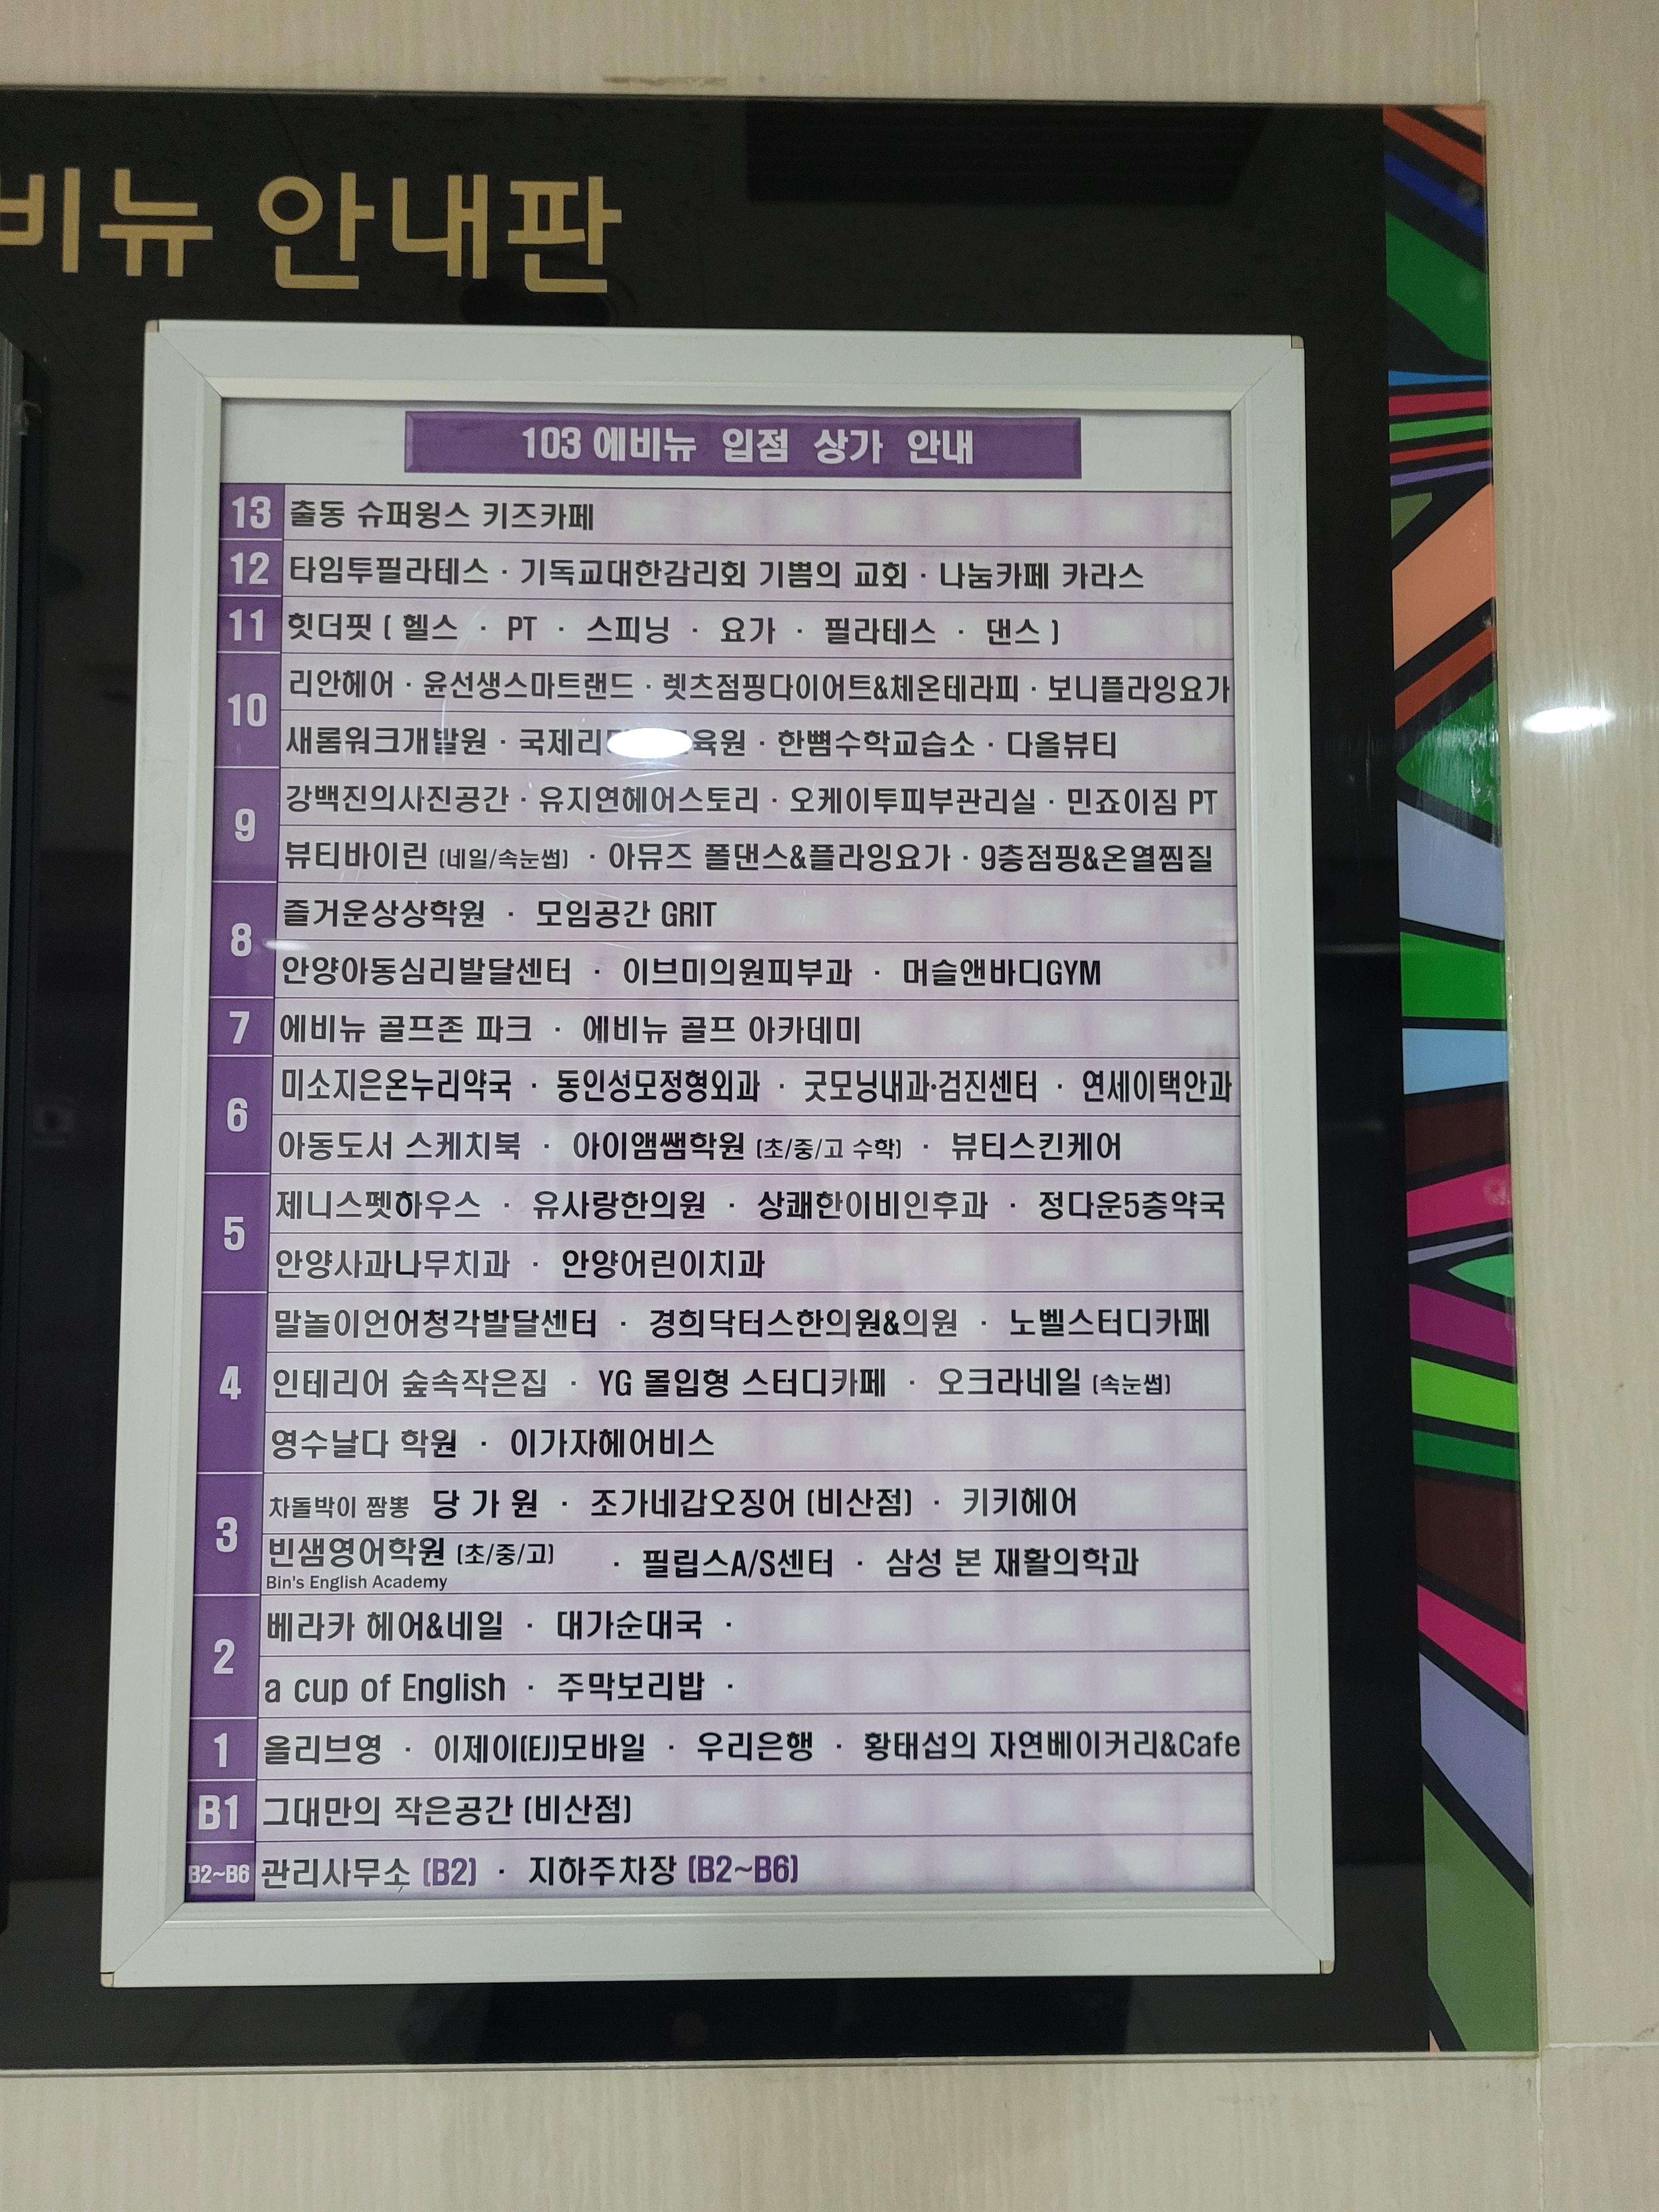 비뉴 안내판
103 에비뉴 입점 상가 안내
13 출동 슈퍼윙스 키즈카페
12 타임투필라테스 · 기독교대한감리회 기쁨의 교회 · 나눔카페 카라스
11 힛더핏 ( 헬스 · PT · 스피닝 · 요가 · 필라테스 · 댄스 )
10
리안헤어 · 윤선생스마트랜드 · 렛츠점핑다이어트&체온테라피 · 보니플라잉요가
새롬워크개발원 · 한뼘수학교습소 · 다올뷰티
9
강백진의사진공간 · 유지연헤어스토리 · 오케이투피부관리실 · 민죠이짐 PT
뷰티바이린 (네일/속눈썹) · 아뮤즈 폴댄스&플라잉요가 · 9층점핑&온열찜질
8
즐거운상상학원 · 모임공간 GRIT
안양아동심리발달센터 · 이브미의원피부과 · 머슬앤바디GYM
7 에비뉴 골프존 파크 · 에비뉴 골프 아카데미
6
미소지은온누리약국 · 동인성모정형외과 · 굿모닝내과·검진센터 · 연세이택안과
아동도서 스케치북 · 아이앰쌤학원 (초/중/고 수학) · 뷰티스킨케어
5
제니스펫하우스 · 유사랑한의원 · 상쾌한이비인후과 · 정다운5층약국
안양사과나무치과 · 안양어린이치과
4
말놀이언어청각발달센터 · 경희닥터스한의원&의원 · 노벨스터디카페
인테리어 숲속작은집 · YG 몰입형 스터디카페 · 오크라네일 (속눈썹)
영수날다 학원 · 이가자헤어비스
3
차돌박이 짬뽕 당 가 원 · 조가네갑오징어 (비산점) · 키키헤어
빈샘영어학원 (초/중/고) · 필립스A/S센터 · 삼성 본 재활의학과
Bin's English Academy
2
베라카 헤어&네일 · 대가순대국 ·
a cup of English · 주막보리밥 ·
1 올리브영 · 이제이(EJ)모바일 · 우리은행 · 황태섭의 자연베이커리&Cafe
B1 그대만의 작은공간 (비산점)
B2~B6 관리사무소 (B2) · 지하주차장 (B2~B6)